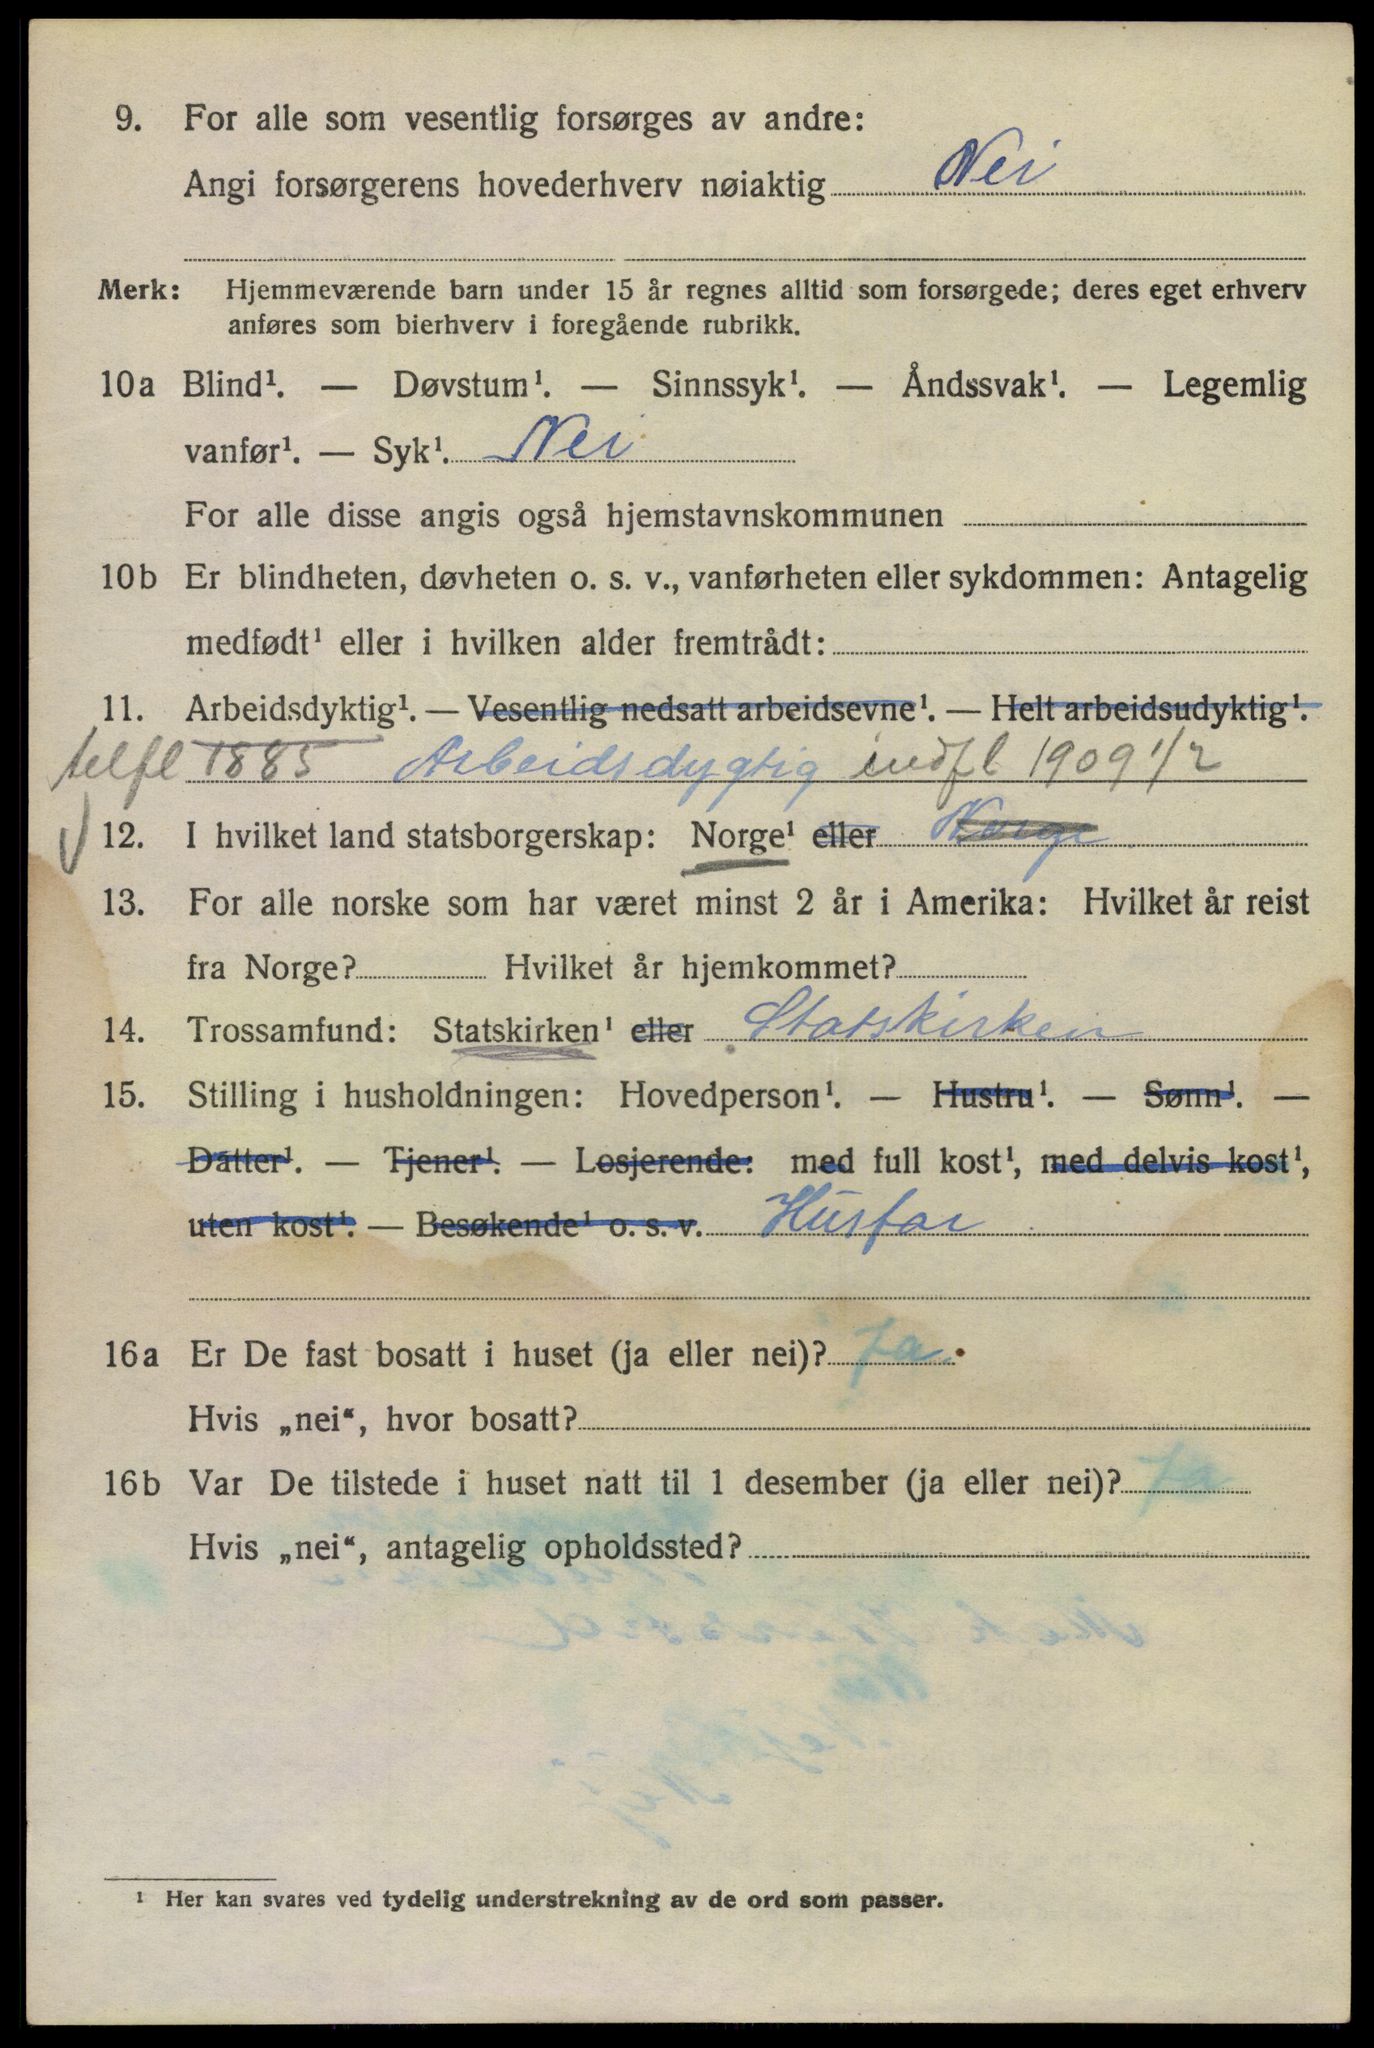 9. For alle som vesentlig forsørges av andre:
Angi forsørgerens hovederhverv nøiaktig Nei
Merk: Hjemmeværende barn under 15 år regnes alltid som forsørgede; deres eget erhverv
anføres som bierhverv i foregående rubrikk.
10a Blind¹. — Døvstum¹. — Sinnssyk¹. — Åndssvak¹. — Legemlig
vanfør¹. — Syk¹. Nei
For alle disse angis også hjemstavnskommunen
10b Er blindheten, døvheten o. s. v., vanførheten eller sykdommen: Antagelig
medfødt¹ eller i hvilken alder fremtrådt:
11. Arbeidsdyktig¹. — Vesentlig nedsatt arbeidsevne¹. — Helt arbeidsudyktig¹.
telfl 1885 Arbeidsdygtig indfl 1909 1/2
12. I hvilket land statsborgerskap: Norge¹ eller Norge
13. For alle norske som har været minst 2 år i Amerika: Hvilket år reist
fra Norge? Hvilket år hjemkommet?
14. Trossamfund: Statskirken¹ eller Statskirken
15. Stilling i husholdningen: Hovedperson¹. — Hustru¹. — Sønn¹. —
Datter¹. — Tjener¹. — Losjerende: med full kost¹, med delvis kost¹,
uten kost¹. — Besøkende¹ o. s. v. Husfar
16a Er De fast bosatt i huset (ja eller nei)? Ja
Hvis „nei“, hvor bosatt?
16b Var De tilstede i huset natt til 1 desember (ja eller nei)? Ja
Hvis „nei“, antagelig opholdssted?
¹ Her kan svares ved tydelig understrekning av de ord som passer.